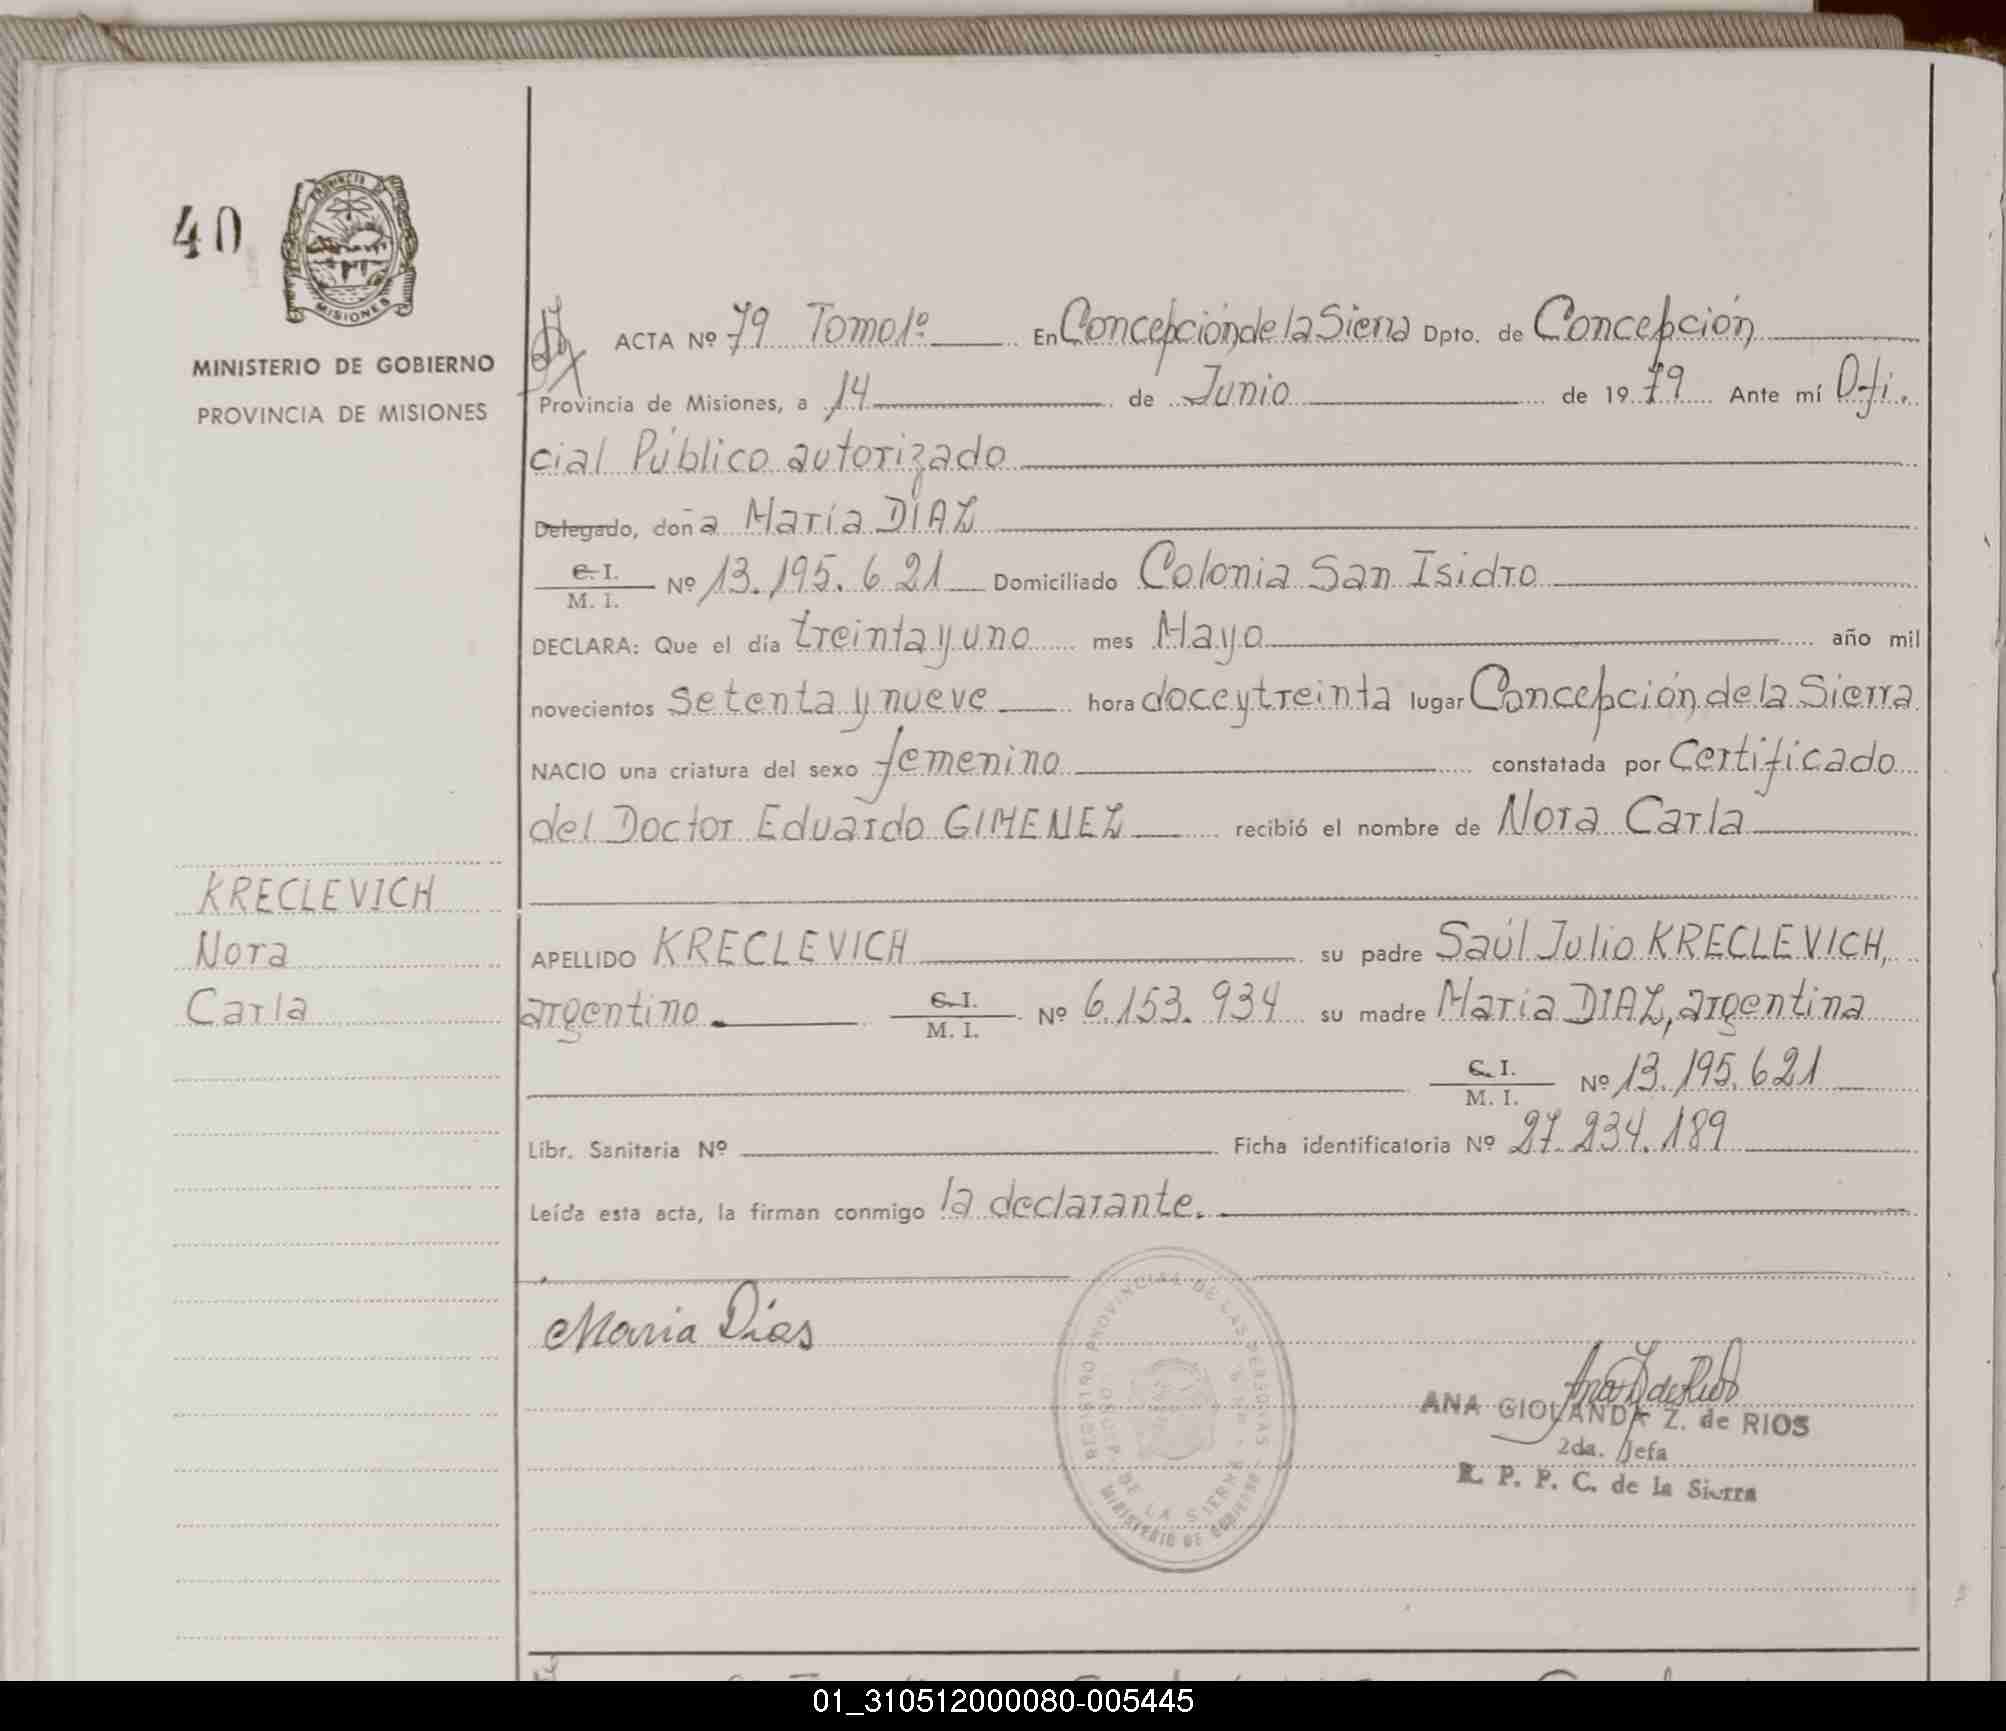 40
PROVINCIA DE
MISIONES
MINISTERIO DE GOBIERNO
PROVINCIA DE MISIONES
KRECLEVICH
Nora
Carla
ACTA Nº 79 Tomo 1º En Concepción de la Sierra Dpto. de Concepción
Provincia de Misiones, a 14 de Junio de 1979 Ante mí Ofi.
cial Público autorizado
Delegado, doña María DIAZ
C. I. / M. I. Nº 13.195.621 Domiciliado Colonia San Isidro
DECLARA: Que el día treinta y uno mes Mayo año mil
novecientos setenta y nueve hora doce y treinta lugar Concepción de la Sierra
NACIO una criatura del sexo femenino constatada por Certificado
del Doctor Eduardo GIMENEZ recibió el nombre de Nora Carla
APELLIDO KRECLEVICH su padre Saúl Julio KRECLEVICH,
argentino. C. I. / M. I. Nº 6.153.934 su madre María DIAZ, argentina
C. I. / M. I. Nº 13.195.621
Libr. Sanitaria Nº Ficha identificatoria Nº 27.234.189
Leída esta acta, la firman conmigo la declarante.
Maria Días
REGISTRO PROVINCIAL DE LAS PERSONAS
DE LA SIERRA
MINISTERIO DE GOBIERNO
Ana Z de Rios
ANA GIOLANDA Z. de RIOS
2da. Jefa
R. P. P. C. de la Sierra
01_310512000080-005445